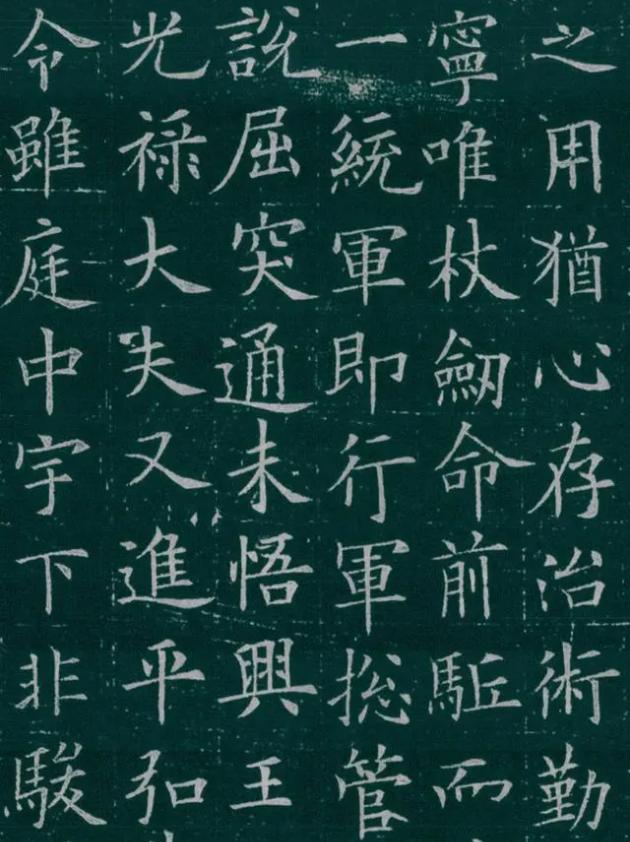 之用猶心存治術勤
寧唯杖劒命前駈而
一統軍即行軍捴管
說屈突通未悟興王
光禄大夫又進平弘
令雖庭中宇下非駿